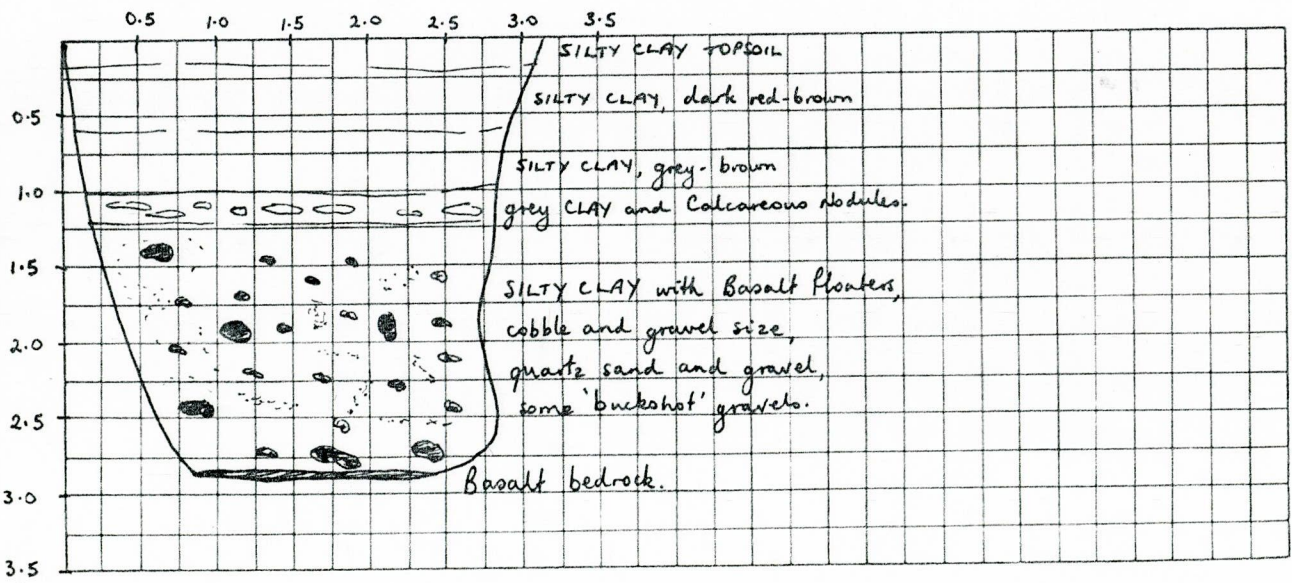 0.5 1.0 1.5 2.0 2.5 3.0 3.5
SILTY CLAY TOPSOIL
SILTY CLAY, dark red-brown
0.5
SILTY CLAY, grey-brown
1.0
grey CLAY and Calcareous Nodules.
1.5
SILTY CLAY with Basalt floaters,
cobble and gravel size,
2.0
quartz sand and gravel,
some 'buckshot' gravels.
2.5
Basalt bedrock.
3.0
3.5